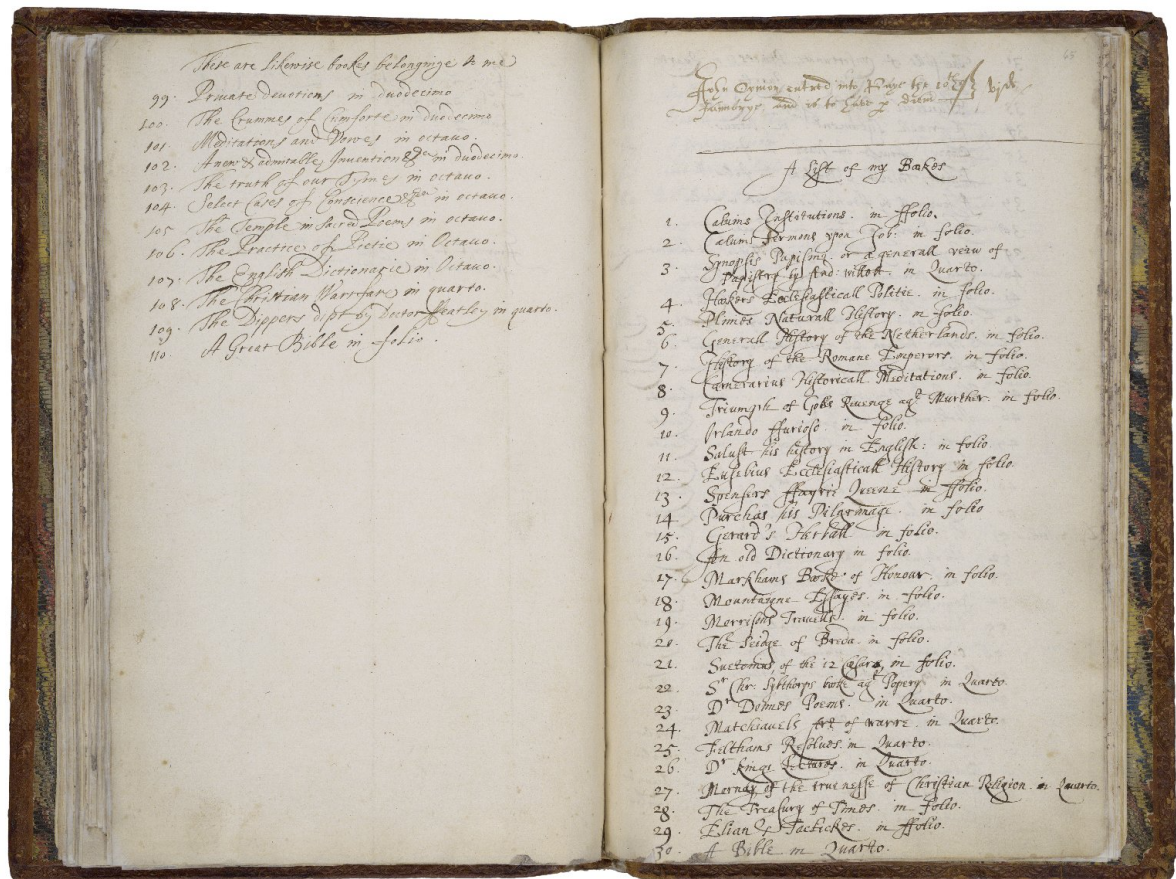 These are likewise bookes belonginge to me
99. Private devotions in duodecimo
100. The Crummes of Cumforte in duodecimo
101. Meditations and Vowes in octavo.
102. A new & admirable Invention in duodecimo.
103. The truth of our Tymes in octavo.
104. Select Cases of Conscience in octavo.
105 The Temple in Sacred Poems in octavo.
106. The Practice of Pietie in Octavo.
107. The English Dictionarie in Octavo.
108. The Christian Warrfare in quarto.
109. The Dippers dipt by doctor Featley in quarto.
110. A Great Bible in folio.
65
John entred into the 10th
and is to have p
A List of my Bookes
1. Calvins Institutions. in ffolio.
2 Calvins Sermons upon Job. in folio.
3. Synopsis Papismi, or a generall vew of
Papistry by And: Willett. in Quarto.
4. Hookers Ecclesiasticall Politie. in folio.
5. Plinies Naturall History. in folio.
6 Generall History of the Netherlands. in folio.
7. History of the Romane Emperors. in folio.
8 Camerarius Historicall Meditations. in folio.
9. Triumph of Gods Revenge agt Murther. in folio.
10. Orlando ffurioso in folio.
11. Salust his history in English: in folio
12. Eusebius Ecclesiasticall History in folio.
13. Spensers ffayrie Queene in ffolio.
14 Purchas his Pilgrimage. in folio
15. Gerard's Herball in folio.
16. An old Dictionary in folio.
17. Markhams Booke of Honour. in folio.
18. Mountaigne Essayes. in folio.
19. Morrisons Travells. in folio.
20. The Seidge of Breda in folio.
21. Suetonius, of the 12 Cæsars, in folio.
22. Sr Chr: Sybthorps booke agt Popery in Quarto.
23. Dr Donnes Poems. in Quarto.
24. Matchiavels Art of warre. in Quarto.
25. Felthams Resolves in Quarto.
26. Dr Kings Lectures. in Quarto.
27. Mornay of the truenesse of Christian Religion. in Quarto.
28. The Treasury of Times in folio.
29. Elian's Tactickes. in ffolio.
30. A Bible in Quarto.